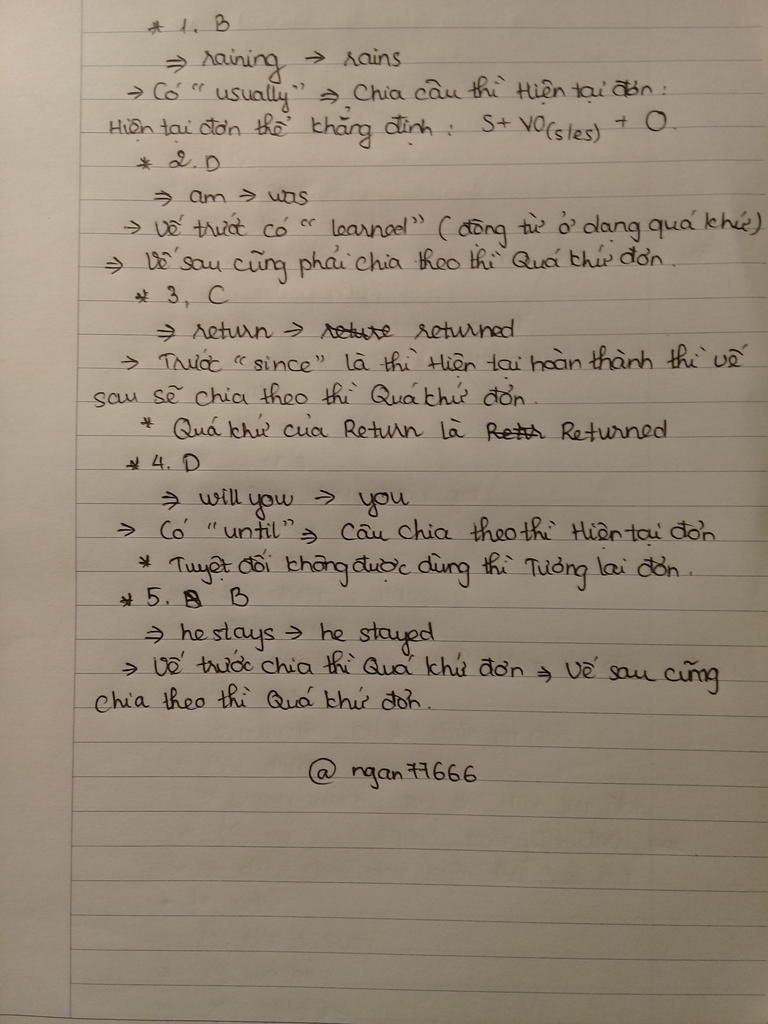 * 1. B
⇒ raining → rains
→ Có "usually" ⇒ Chia câu thì Hiện tại đơn:
Hiện tại đơn thể khẳng định: S+ V0(s/es) + O.
* 2. D
⇒ am → was
→ Vế trước có "learned" (động từ ở dạng quá khứ)
⇒ Vế sau cũng phải chia theo thì Quá khứ đơn.
* 3, C
⇒ return → returned
→ Trước "since" là thì Hiện tại hoàn thành thì vế
sau sẽ chia theo thì Quá khứ đơn.
* Quá khứ của Return là Returned
* 4. D
⇒ will you → you
→ Có "until" ⇒ Câu chia theo thì Hiện tại đơn
* Tuyệt đối không được dùng thì Tương lai đơn.
* 5. B
⇒ he stays → he stayed
⇒ Vế trước chia thì Quá khứ đơn ⇒ Vế sau cũng
chia theo thì Quá khứ đơn.
@ ngan77666